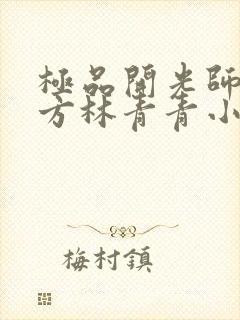 極品開光師
方林青青小
梅村鎮